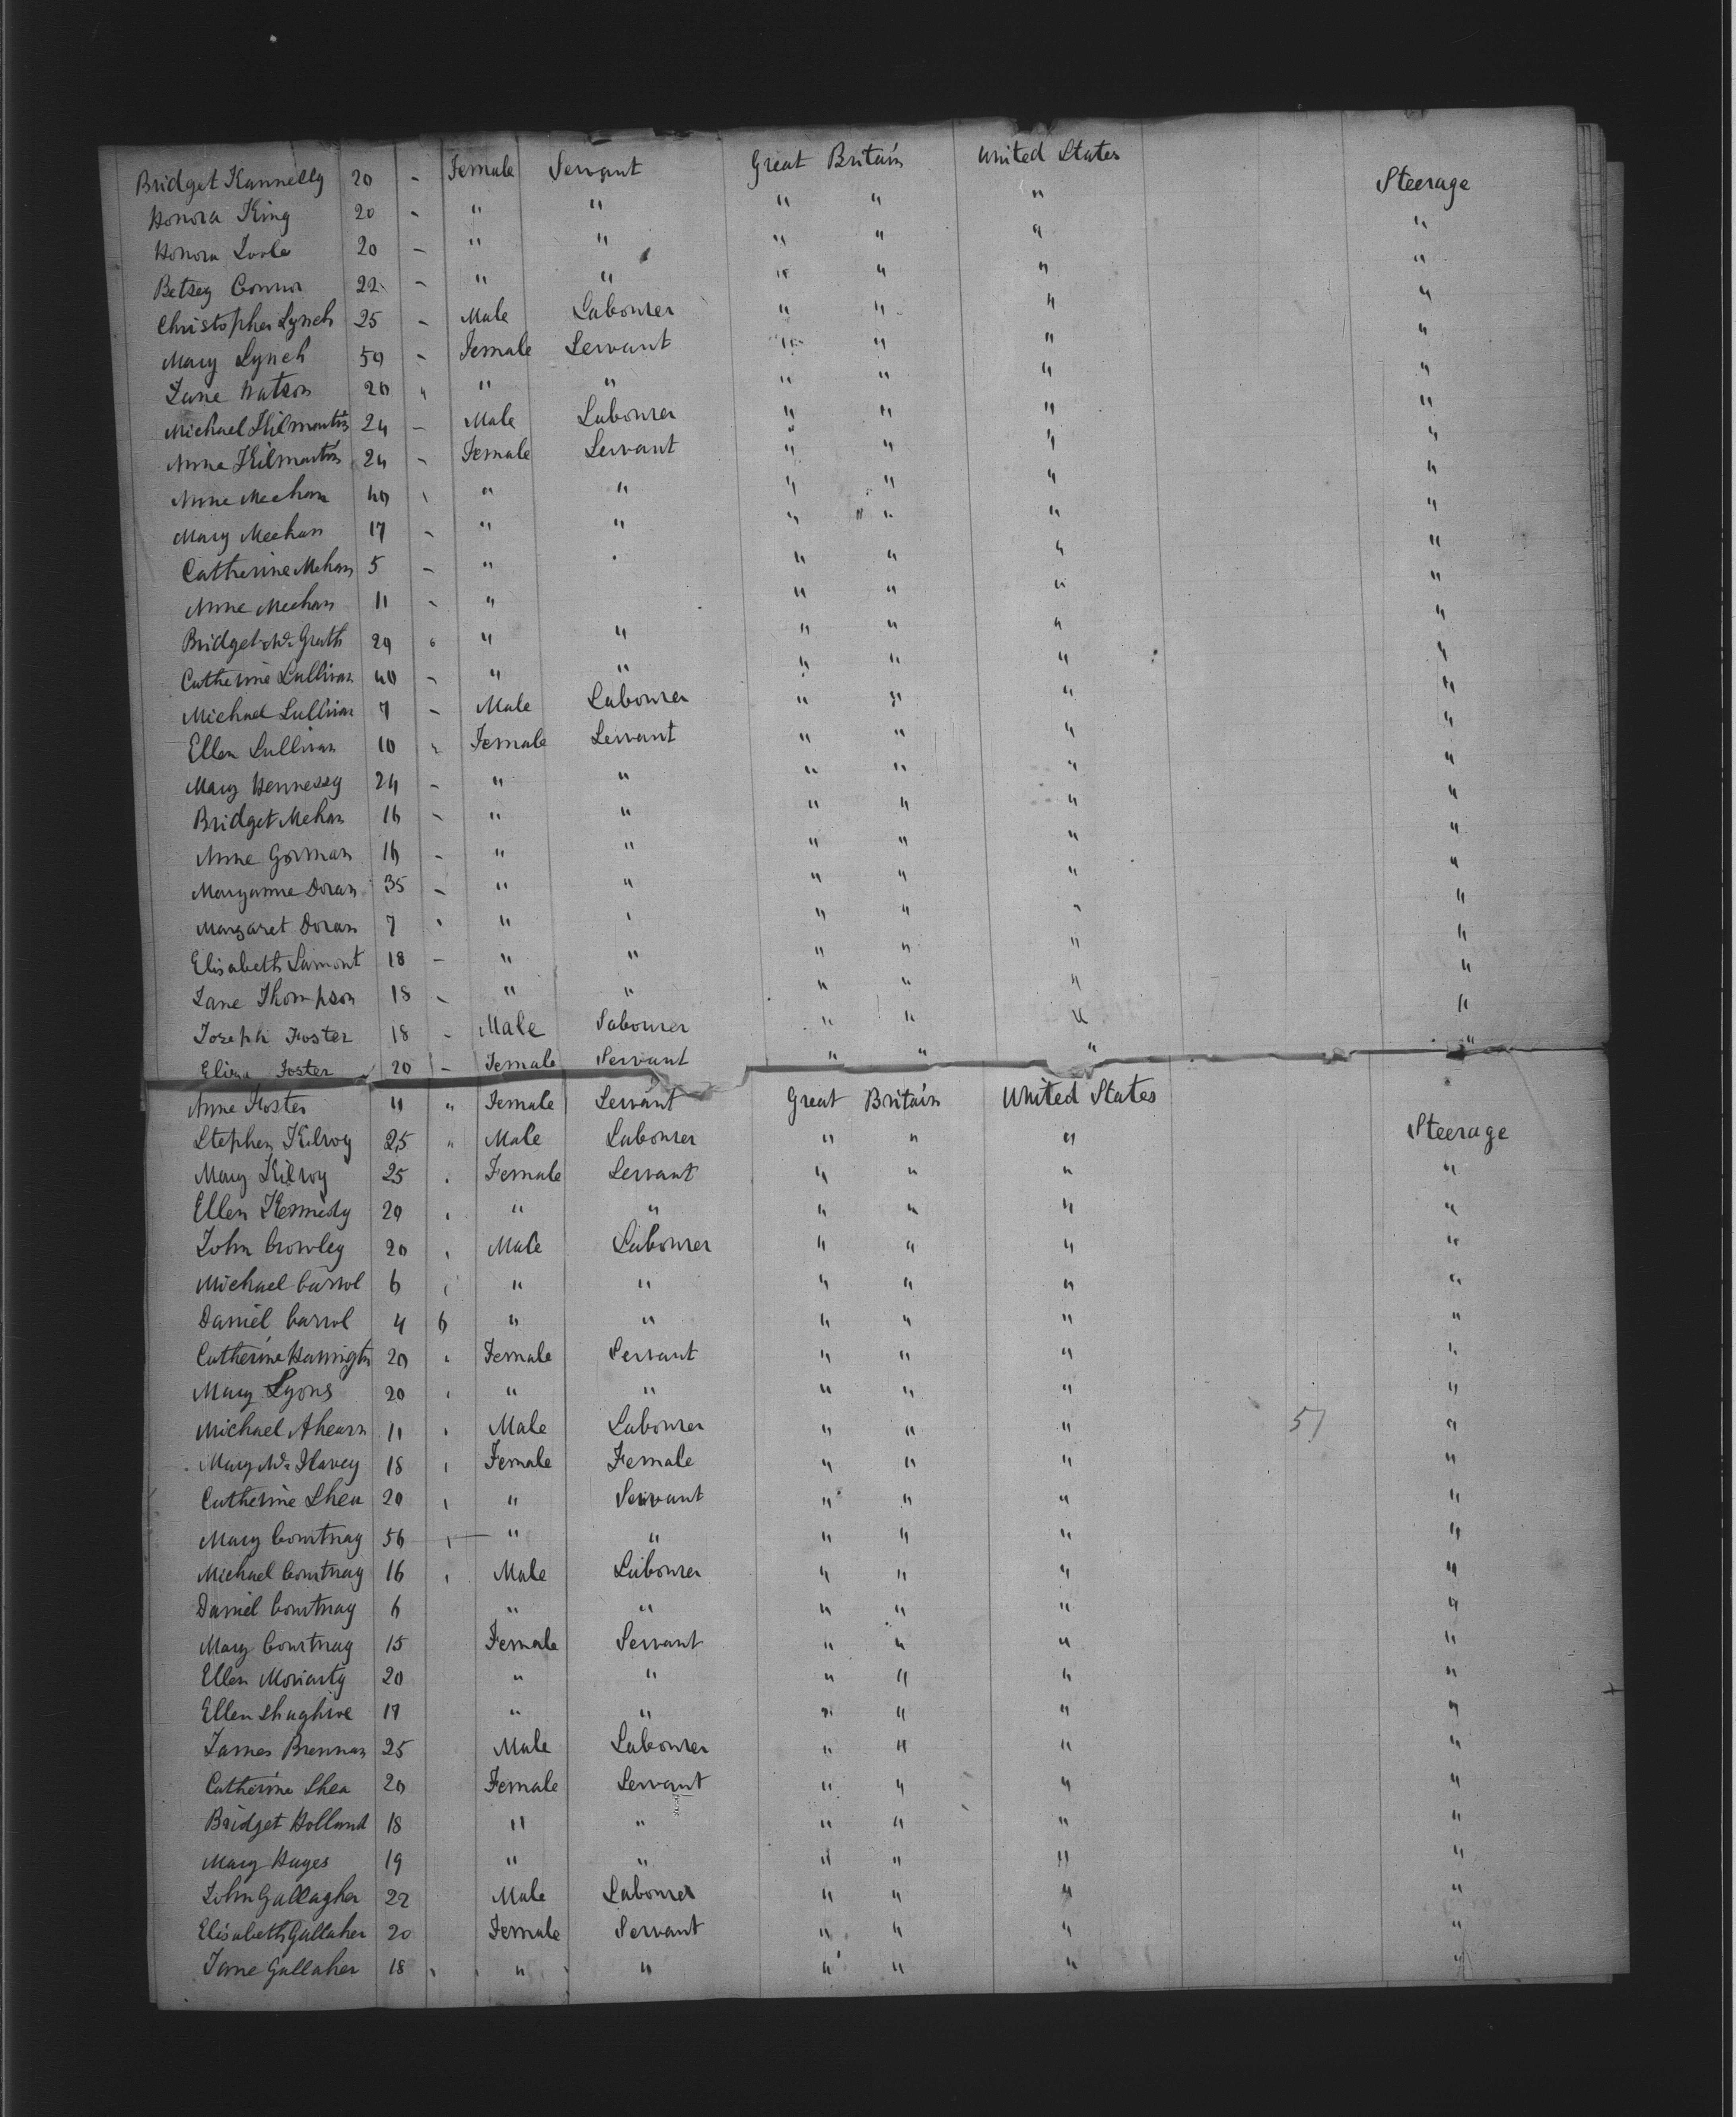 Bridget Kannelly 20 - Female Servant Great Britain United States Steerage
Honora King 20 - " " " " " "
Honora Toole 20 - " " " " " "
Betsey Connor 22 - " " " " " "
Christopher Lynch 25 - Male Labourer " " " "
Mary Lynch 50 - Female Servant " " " "
Jane Watson 20 " " " " " " "
Michael Kilmartin 24 - Male Labourer " " " "
Anne Kilmartin 24 - Female Servant " " " "
Anne Meehan 40 " " " " " "
Mary Meehan 17 - " " " " " "
Catherine Mehan 5 - " " " " "
Anne Meehan 11 - " " " " "
Bridget McGrath 20 " " " " " "
Catherine Sullivan 40 - " " " " " "
Michael Sullivan 7 - Male Labourer " " " "
Ellen Sullivan 10 " Female Servant " " " "
Mary Hennessy 24 - " " " " " "
Bridget Mehan 16 - " " " " " "
Anne Gorman 16 - " " " " " "
Maryanne Doran 35 - " " " " " "
Margaret Doran 7 ' " ' " " " "
Elisabeth Lamont 18 - " " " " " "
Jane Thompson 18 - " " " " " "
Joseph Foster 18 - Male Labourer " " " "
Eliza Foster 20 - Female Servant " " " "
Anne Foster 11 " Female Servant Great Britain United States
Stephen Kilroy 25 " Male Labourer " " " Steerage
Mary Kilroy 25 Female Servant " " " "
Ellen Kennedy 20 " " " " " "
John Crowley 20 Male Labourer " " " "
Michael Carrol 6 " " " " " "
Daniel Carrol 4 6 " " " " " "
Catherine Harringtn 20 Female Servant " " " "
Mary Lyons 20 " " " " " "
Michael Ahearn 11 Male Labourer " " " 57 "
Mary Female Female " " " "
Catherine Shea 20 " Servant " " " "
Mary Courtnay 56 " " " " " "
Michael Courtnay 16 Male Labourer " " " "
Daniel Courtnay 6 " " " " " "
Mary Courtnay 15 Female Servant " " " "
Ellen Moriarty 20 " " " " " "
Ellen " " " " " "
James Brennan 25 Male Labourer " " " "
Catherine Shea 20 Female Servant " " " "
Bridget Holland 18 " " " " " "
Mary Hayes 19 " " " " " "
John Gallagher 22 Male Labourer " " " "
Elisabeth Gallaher 20 Female Servant " " " "
Jane Gallaher 18 " " " " " "